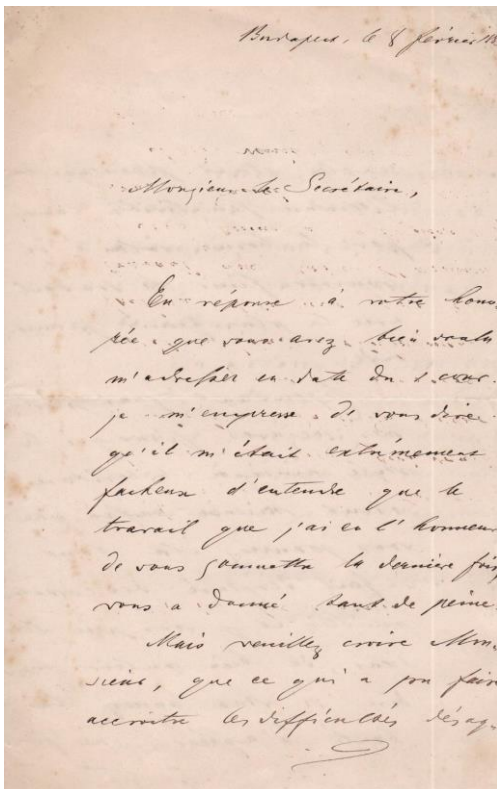 Budapest, le 8 février 18
Monsieur le Secrétaire,
En réponse à votre hono-
rée que vous avez bien voulu
m'adresser en date du 2 cour.
je m'empresse de vous dire
qu'il m'était extrêmement
facheux d'entendre que le
travail que j'ai eu l'honneur
de vous soumettre la dernière fois,
vous a donné tant de peine.
Mais veuillez croire Mon-
sieur, que ce qui a pu faire
accroitre les difficultés désag-